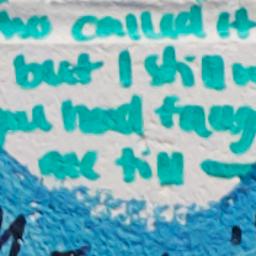 who called it
but I still w
you had taug
me till